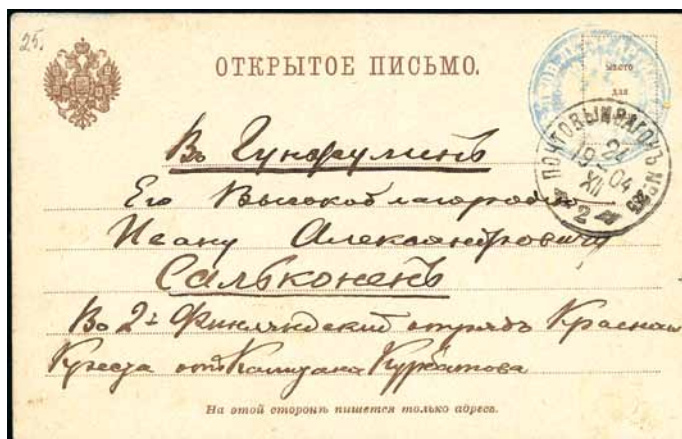 25.
ОТКРЫТОЕ ПИСЬМО.
МѢСТО
ДЛЯ
ПОЧТОВЫЙ ВАГОНЪ №
24
XII
1904
2
Въ Гунжулинъ
Его Высокоблагородію
Ивану Александровичу
Сальконенъ
Въ 2й Финляндский отрядъ Краснаго
Креста отъ Капитана Курбатова
На этой сторонѣ пишется только адресъ.